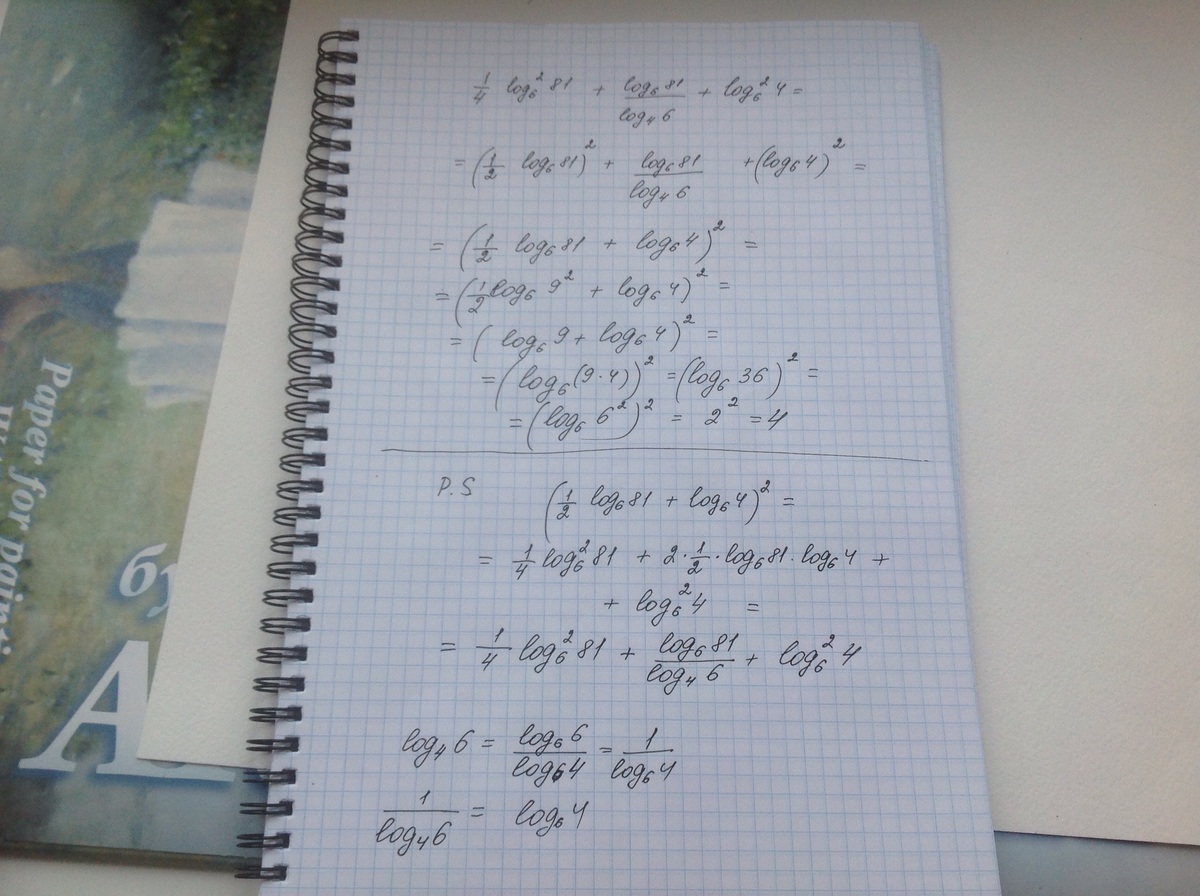 1/4 log₆² 81 + log₆ 81 / log₄ 6 + log₆² 4 =
= (1/2 log₆ 81)² + log₆ 81 / log₄ 6 + (log₆ 4)² =
= (1/2 log₆ 81 + log₆ 4)² =
= (1/2 log₆ 9² + log₆ 4)² =
= (log₆ 9 + log₆ 4)² =
= (log₆ (9·4))² = (log₆ 36)² =
= (log₆ 6²)² = 2² = 4
P.S (1/2 log₆ 81 + log₆ 4)² =
= 1/4 log₆² 81 + 2·1/2·log₆ 81·log₆ 4 +
+ log₆² 4 =
= 1/4 log₆² 81 + log₆ 81 / log₄ 6 + log₆² 4
log₄ 6 = log₆ 6 / log₆ 4 = 1 / log₆ 4
1 / log₄ 6 = log₆ 4
Paper for
бу
А